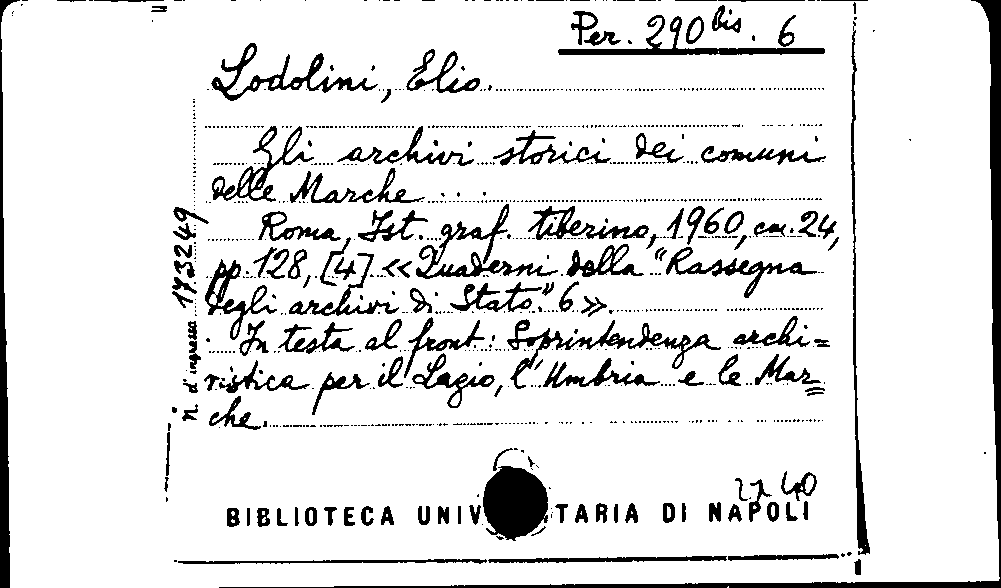 Per. 290 bis. 6
Lodolini, Elio.
Gli archivi storici dei comuni
delle Marche ...
Roma, Ist. graf. tiberino, 1960, cm. 24,
pp. 128, [4] «Quaderni della "Rassegna
degli archivi di Stato." 6».
In testa al front: Soprintendenza archi=
vistica per il Lazio, l'Umbria e le Mar=
che.
n. d'ingresso 173249
BIBLIOTECA UNIV TARIA DI NAPOLI